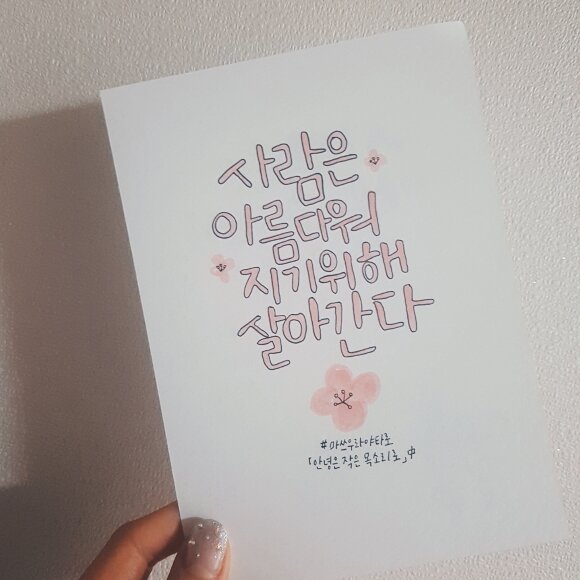 사람은
아름다워
지기위해
살아간다
#마쓰우라야타로
「안녕은 작은 목소리로」中